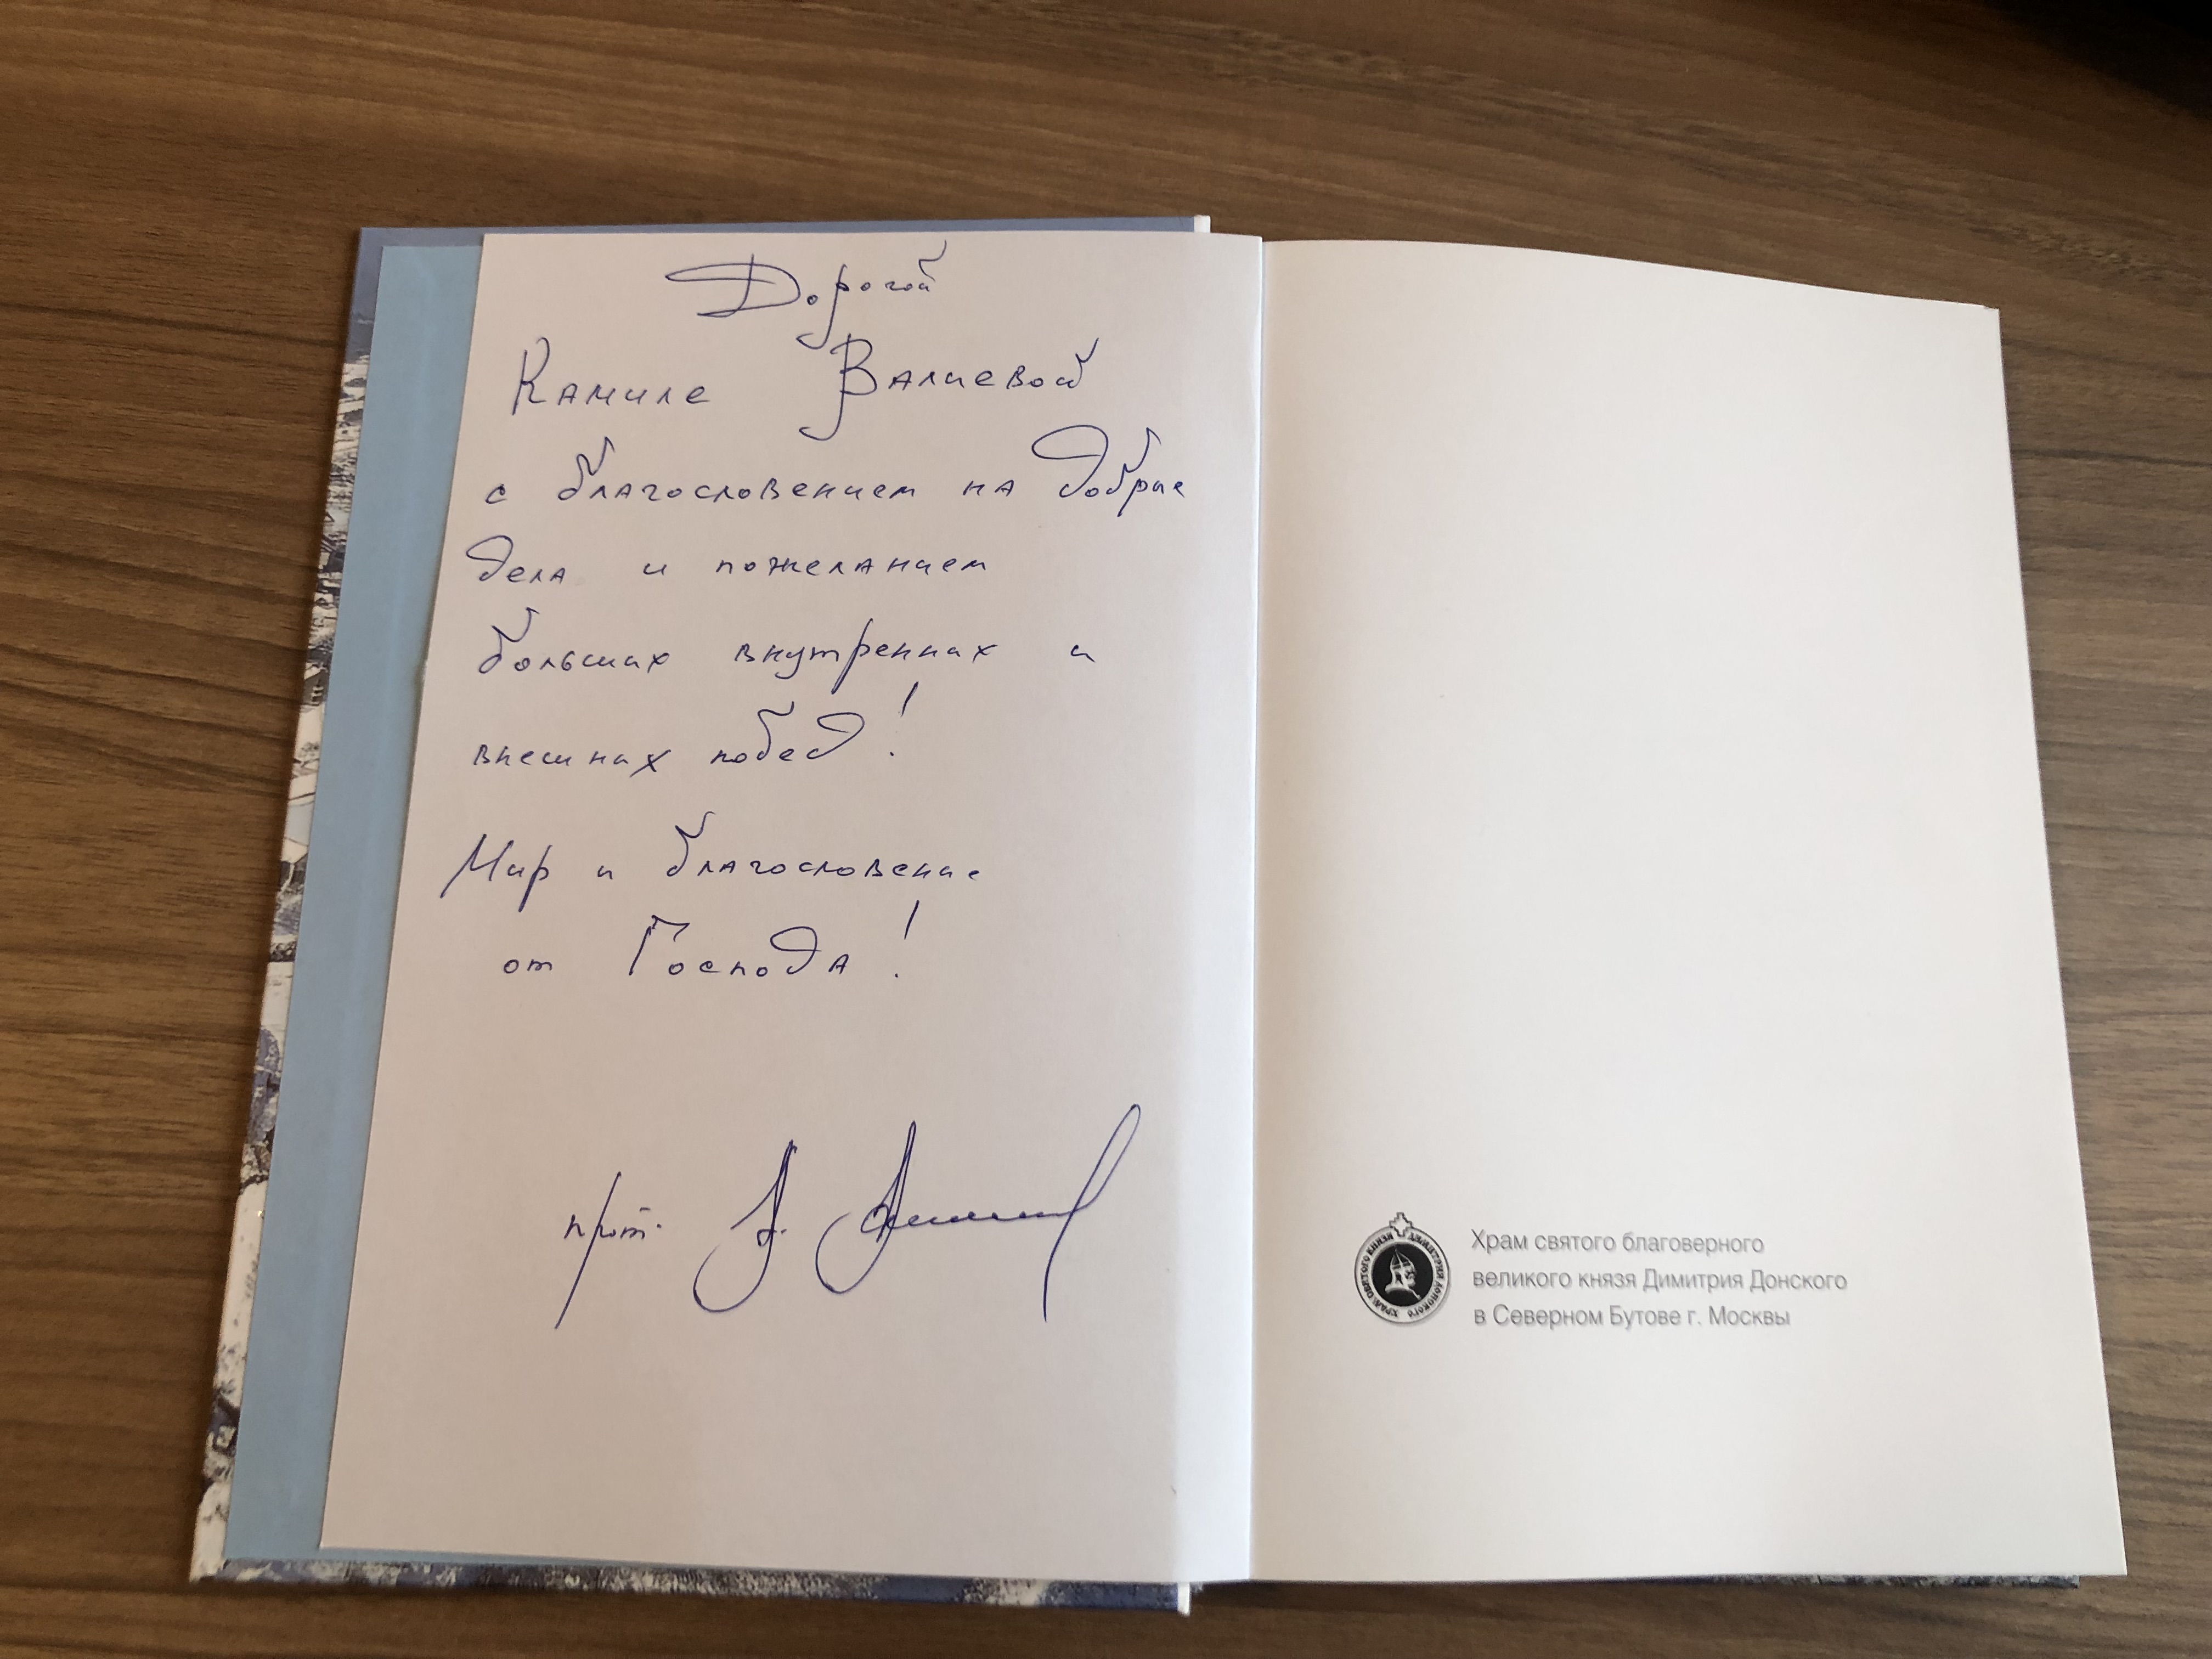 Дорогой
Камиле Валиевой
с благословением на добрые
дела и пожеланием
больших внутренних и
внешних побед!
Мир и благословение
от Господа!
прот. А.
Храм святого благоверного
великого князя Димитрия Донского
в Северном Бутове г. Москвы